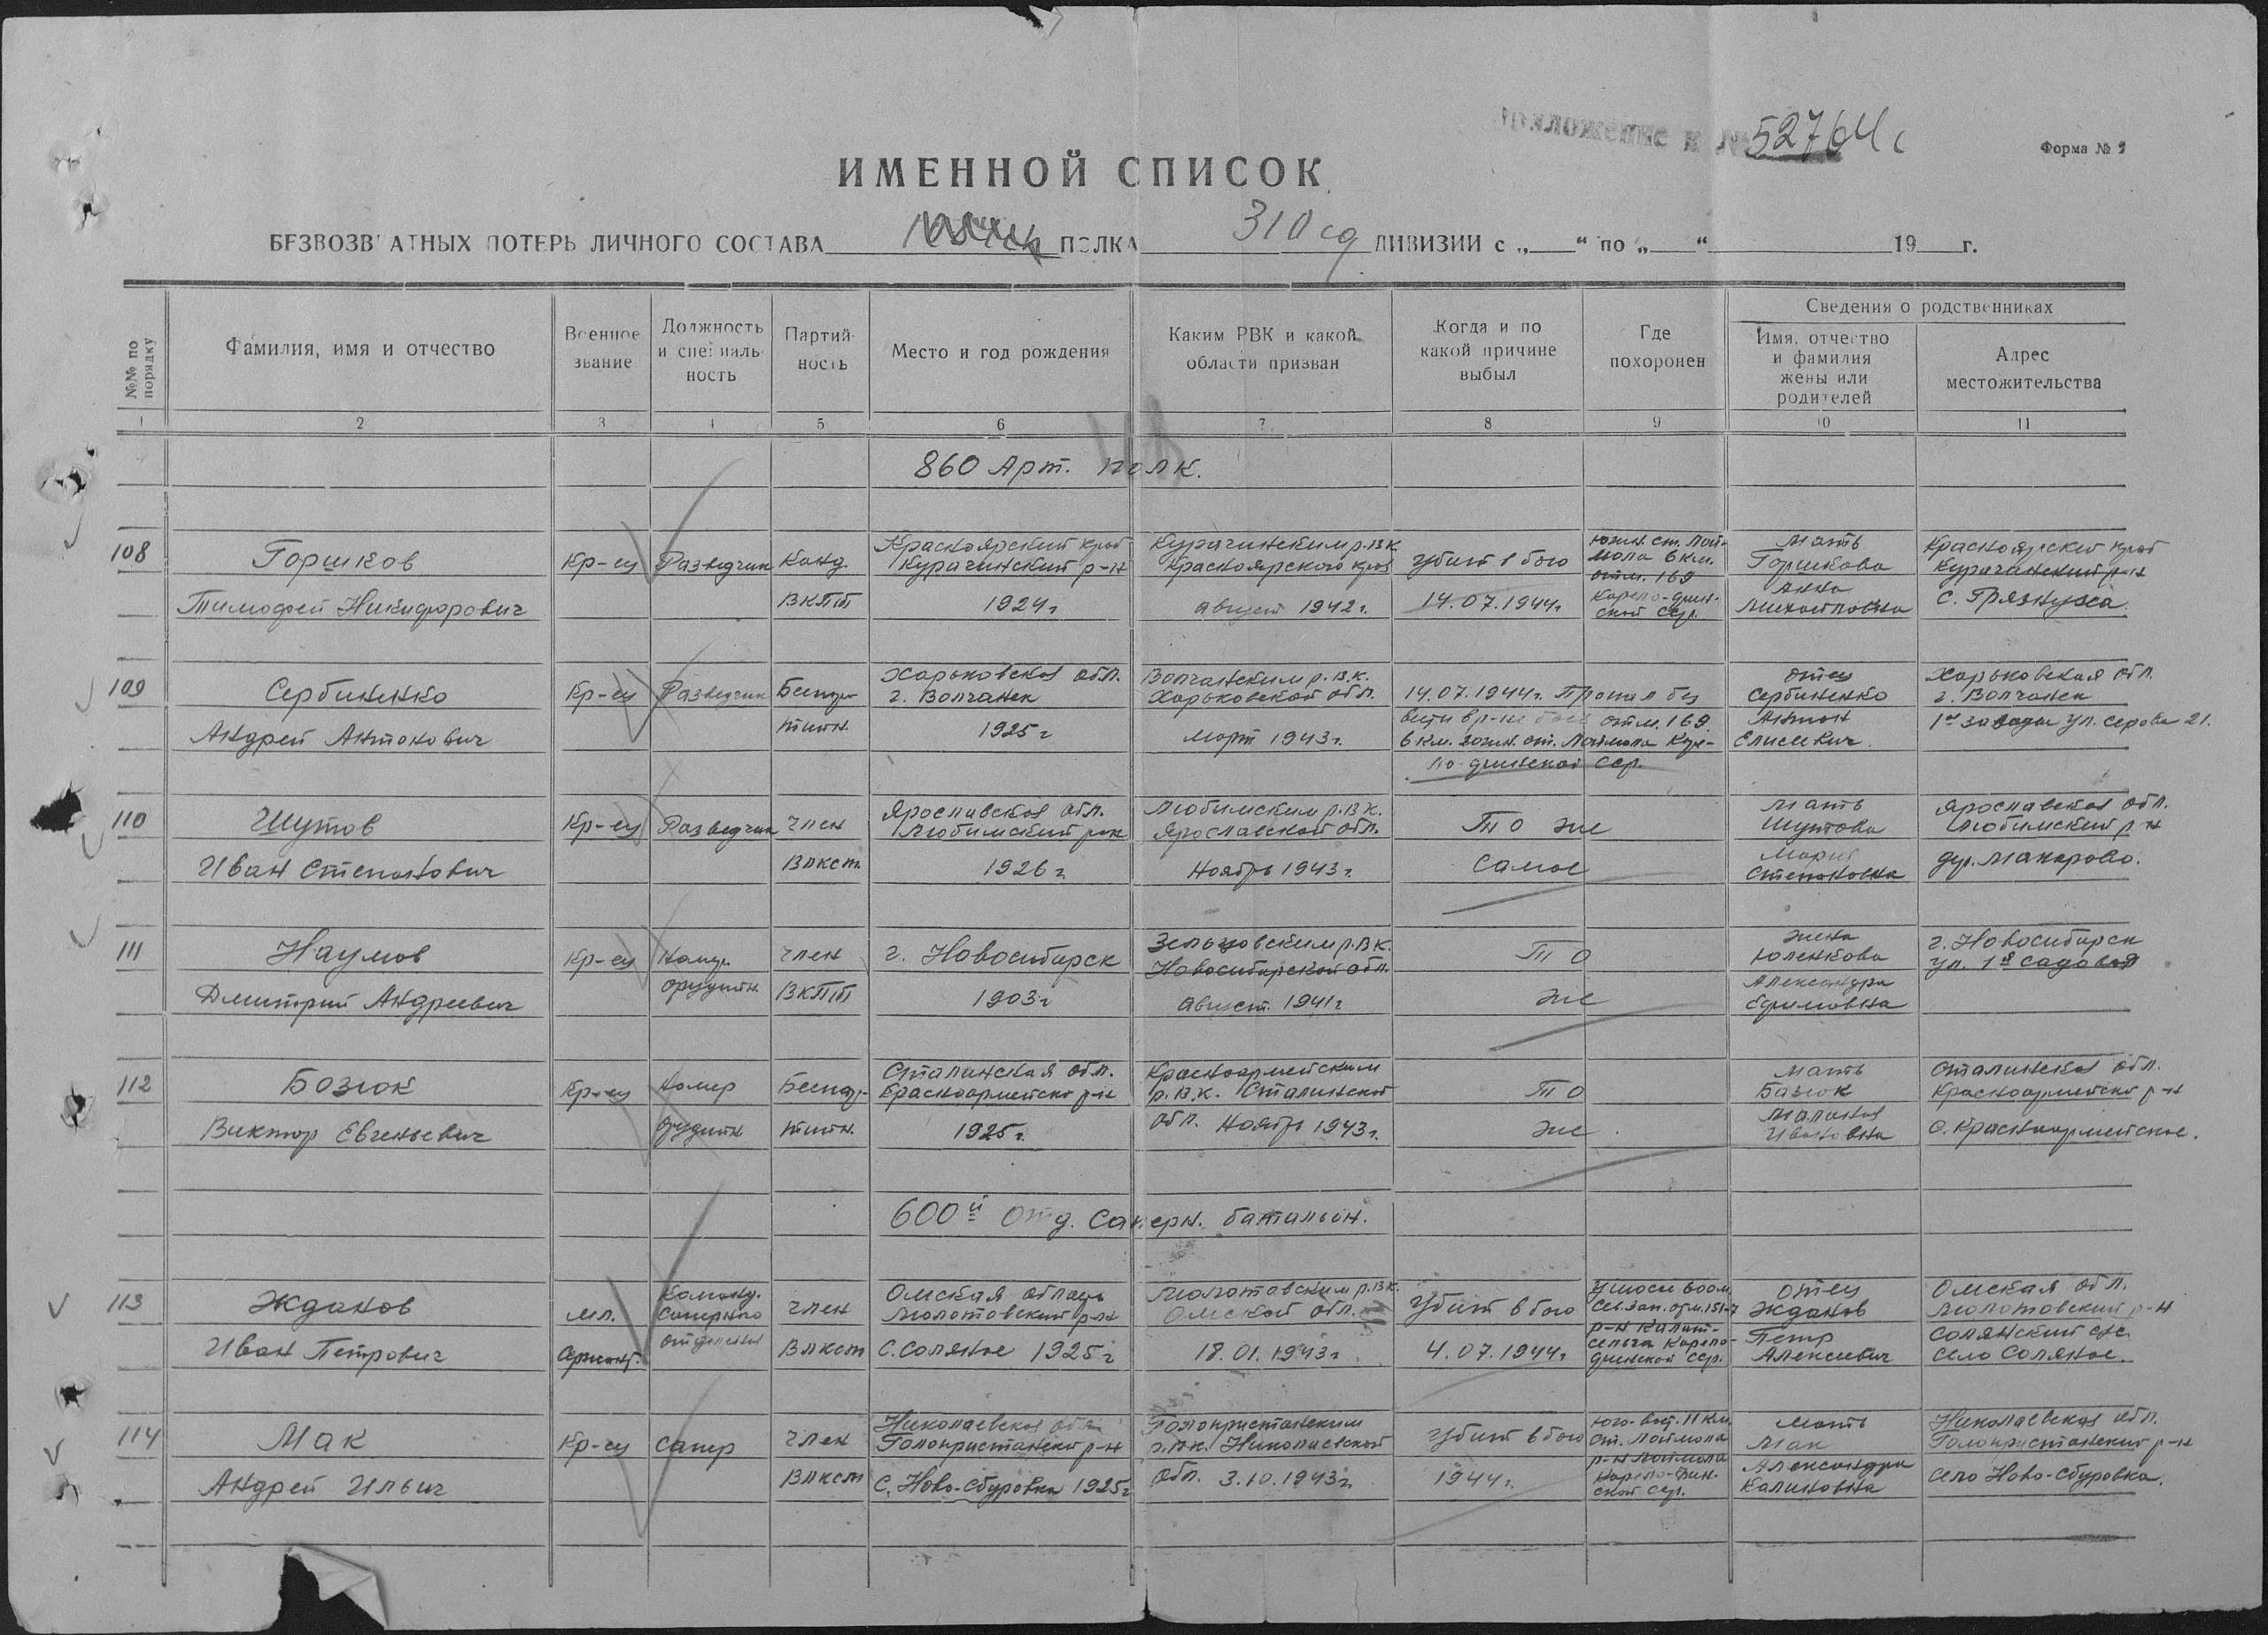 Приложение к № 52764с
Форма № 1
ИМЕННОЙ СПИСОК
БЕЗВОЗВРАТНЫХ ПОТЕРЬ ЛИЧНОГО СОСТАВА ПОЛКА 310 сд ДИВИЗИИ с „ “ по „ “ 19 г.
№№ по порядку
Фамилия, имя и отчество
Военное звание
Должность и специальность
Партийность
Место и год рождения
Каким РВК и какой области призван
Когда и по какой причине выбыл
Где похоронен
Сведения о родственниках
Имя, отчество и фамилия жены или родителей
Адрес местожительства
1 2 3 4 5 6 7 8 9 10 11
860 Арт. полк.
108
Горшков
Тимофей Никифорович
Кр-ец
Разведчик
Канд.
ВКПб
Красноярский край
Курагинский р-н
1924г
Курагинским р.в.к.
Красноярского края
август 1942г.
Убит в бою
14.07.1944г.
южн. ст. Лой-
мола 6 км.
отм. 169
Карело-фин-
ской ССР.
Мать
Горшкова
Анна
Михайловна
Красноярский край
Курагинский р-н
с. Грязнуха
109
Сербиненко
Андрей Антонович
Кр-ец
Разведчик
Беспар
тийн.
Харьковская обл.
г. Волчанск
1925г
Волчанским р.в.к.
Харьковской обл.
март 1943г.
14.07.1944г. Пропал без
вести в р-не боя отм. 169
6 км. южн. ст. Лоймола Каре-
ло-финской ССР.
отец
Сербиненко
Антон
Елисеевич
Харьковская обл.
г. Волчанск
1я Завода ул. Серова 21.
110
Шутов
Иван Степанович
Кр-ец
Разведчик
член
Влксм
Ярославская обл.
Любимский р-н
1926г
Любимским р.в.к.
Ярославской обл.
Ноябрь 1943г.
То же
самое
Мать
Шутова
Мария
Степановна
Ярославская обл.
Любимский р-н
дер. Макарово.
111
Наумов
Дмитрий Андреевич
Кр-ец
Команд.
орудийн.
член
ВКПб
г. Новосибирск
1903г
Зельцовским р.в.к.
Новосибирской обл.
август. 1941г
То
же
жена
Юленкова
Александра
Ефимовна
г. Новосибирск
ул. 1я Садовая
112
Бозюк
Виктор Евгеньевич
Кр-ец
Номер
орудийн
Беспар-
тийн.
Сталинская обл.
Красноармейский р-н
1925г.
Красноармейским
р.в.к. Сталинской
обл. Ноябрь 1943г.
То
же
мать
Базюк
Малания
Ивановна
Сталинская обл.
Красноармейский р-н
с. Красноармейское.
600й Отд. Саперн. батальон.
113
Жданов
Иван Петрович
мл.
сержант.
Команд.
саперного
отделения
член
Влксм
Омская область
Молотовский р-н
с. Соляное 1925г
Молотовским р.в.к.
Омской обл.
18.01.1943г.
Убит в бою
4.07.1944г.
У шоссе 600 м.
Сев. зап. отм. 151-7
р-н
Карело-
финской ССР.
Отец
Жданов
Петр
Алексеевич
Омская обл.
Молотовский р-н
Солянский с/с.
село Соляное.
114
Мак
Андрей Ильич
Кр-ец
сапер
член
Влксм
Николаевская обл
Голопристанский р-н
с. Ново-Сбуровка 1925г
Голопристанским
р.в.к. Николаевской
обл. 3.10.1943г.
Убит в бою
1944г.
Юго-вост. 11 км.
ст. Лоймола
р-н Лоймола
Карело-фин-
ской ССР.
мать
Мак
Александра
Калиновна
Николаевская обл.
Голопристанский р-н
село Ново-Сбуровка.